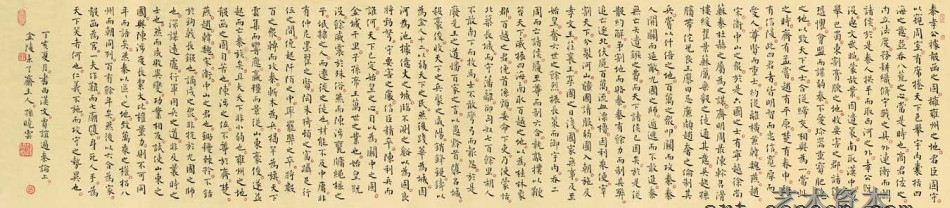 秦孝公據殽函之固擁雍州之地君臣固守
以窺周室有席卷天下包舉宇內囊括四
海之意并吞八荒之心當是時也商君佐之
內立法度務耕織修守戰之具外連衡而鬥
諸侯於是秦人拱手而取西河之外孝公既
沒惠文武昭襄蒙故業因遺策南取漢中
西舉巴蜀東割膏腴之地收要害之郡諸侯
恐懼會盟而謀弱秦不愛珍器重寶肥饒
之地以致天下之士合從締交相與為一當此
之時齊有孟嘗趙有平原楚有春申魏
有信陵此四君者皆明智而忠信寬厚而
愛人尊賢而重士約從離橫兼韓魏燕趙
宋衛中山之眾於是六國之士有甯越徐尚
蘇秦杜赫之屬為之謀齊明周最陳軫召滑
樓緩翟景蘇厲樂毅之徒通其意吳起孫
臏帶佗兒良王廖田忌廉頗趙奢之倫制其
兵嘗以什倍之地百萬之眾叩關而攻秦秦
人開關而延敵九國之師遁逃而不敢進秦
無亡矢遺鏃之費而天下諸侯已困矣於是從
散約解爭割地而賂秦秦有餘力而制其弊
追亡逐北伏尸百萬流血漂櫓因利乘便宰
割天下分裂河山強國請服弱國入朝施及
孝文王莊襄王享國之日淺國家無事及至
始皇奮六世之餘烈振長策而御宇內吞二
周而亡諸侯履至尊而制六合執敲撲以鞭
笞天下威振四海南取百越之地以為桂林象
郡百越之君俯首係頸委命下吏乃使蒙恬
北築長城而守藩籬卻匈奴七百餘里胡人
不敢南下而牧馬士不敢彎弓而報怨於是
廢先王之道焚百家之言以愚黔首隳名城
殺豪俊收天下之兵聚之咸陽銷鋒鏑鑄以
為金人十二以弱天下之民然後踐華為城因
河為池據億丈之城臨不測之谿以為固良
將勁弩守要害之處信臣精卒陳利兵而
誰何天下已定始皇之心自以為關中之固
金城千里子孫帝王萬世之業也始皇既
沒餘威震於殊俗然而陳涉甕牖繩樞之子
氓隸之人而遷徙之徒也才能不及中庸非
有仲尼墨翟之賢陶朱猗頓之富躡足行
伍之間俛起阡陌之中率罷散之卒將數
百之眾轉而攻秦斬木為兵揭竿為旗天下
雲集而響應贏糧而景從山東豪俊遂並
起而亡秦族矣且夫天下非小弱也雍州之地
殽函之固自若也陳涉之位不尊於齊楚
燕趙韓魏宋衛中山之君也鋤耰棘矜不銛
於鉤戟長鎩也謫戍之眾非抗於九國之師
也深謀遠慮行軍用兵之道非及曩時之
士也然而成敗異變功業相反也試使山東之
國與陳涉度長絜大比權量力則不可同
年而語矣然秦以區區之地致萬乘之權招八
州而朝同列百有餘年矣然後以六合為家
殽函為宮一夫作難而七廟隳身死人手為
天下笑者何也仁義不施而攻守之勢異也
丁亥夏月書西漢文章賈誼過秦論
金陵未了齋主人孫曉雲
艺术资本